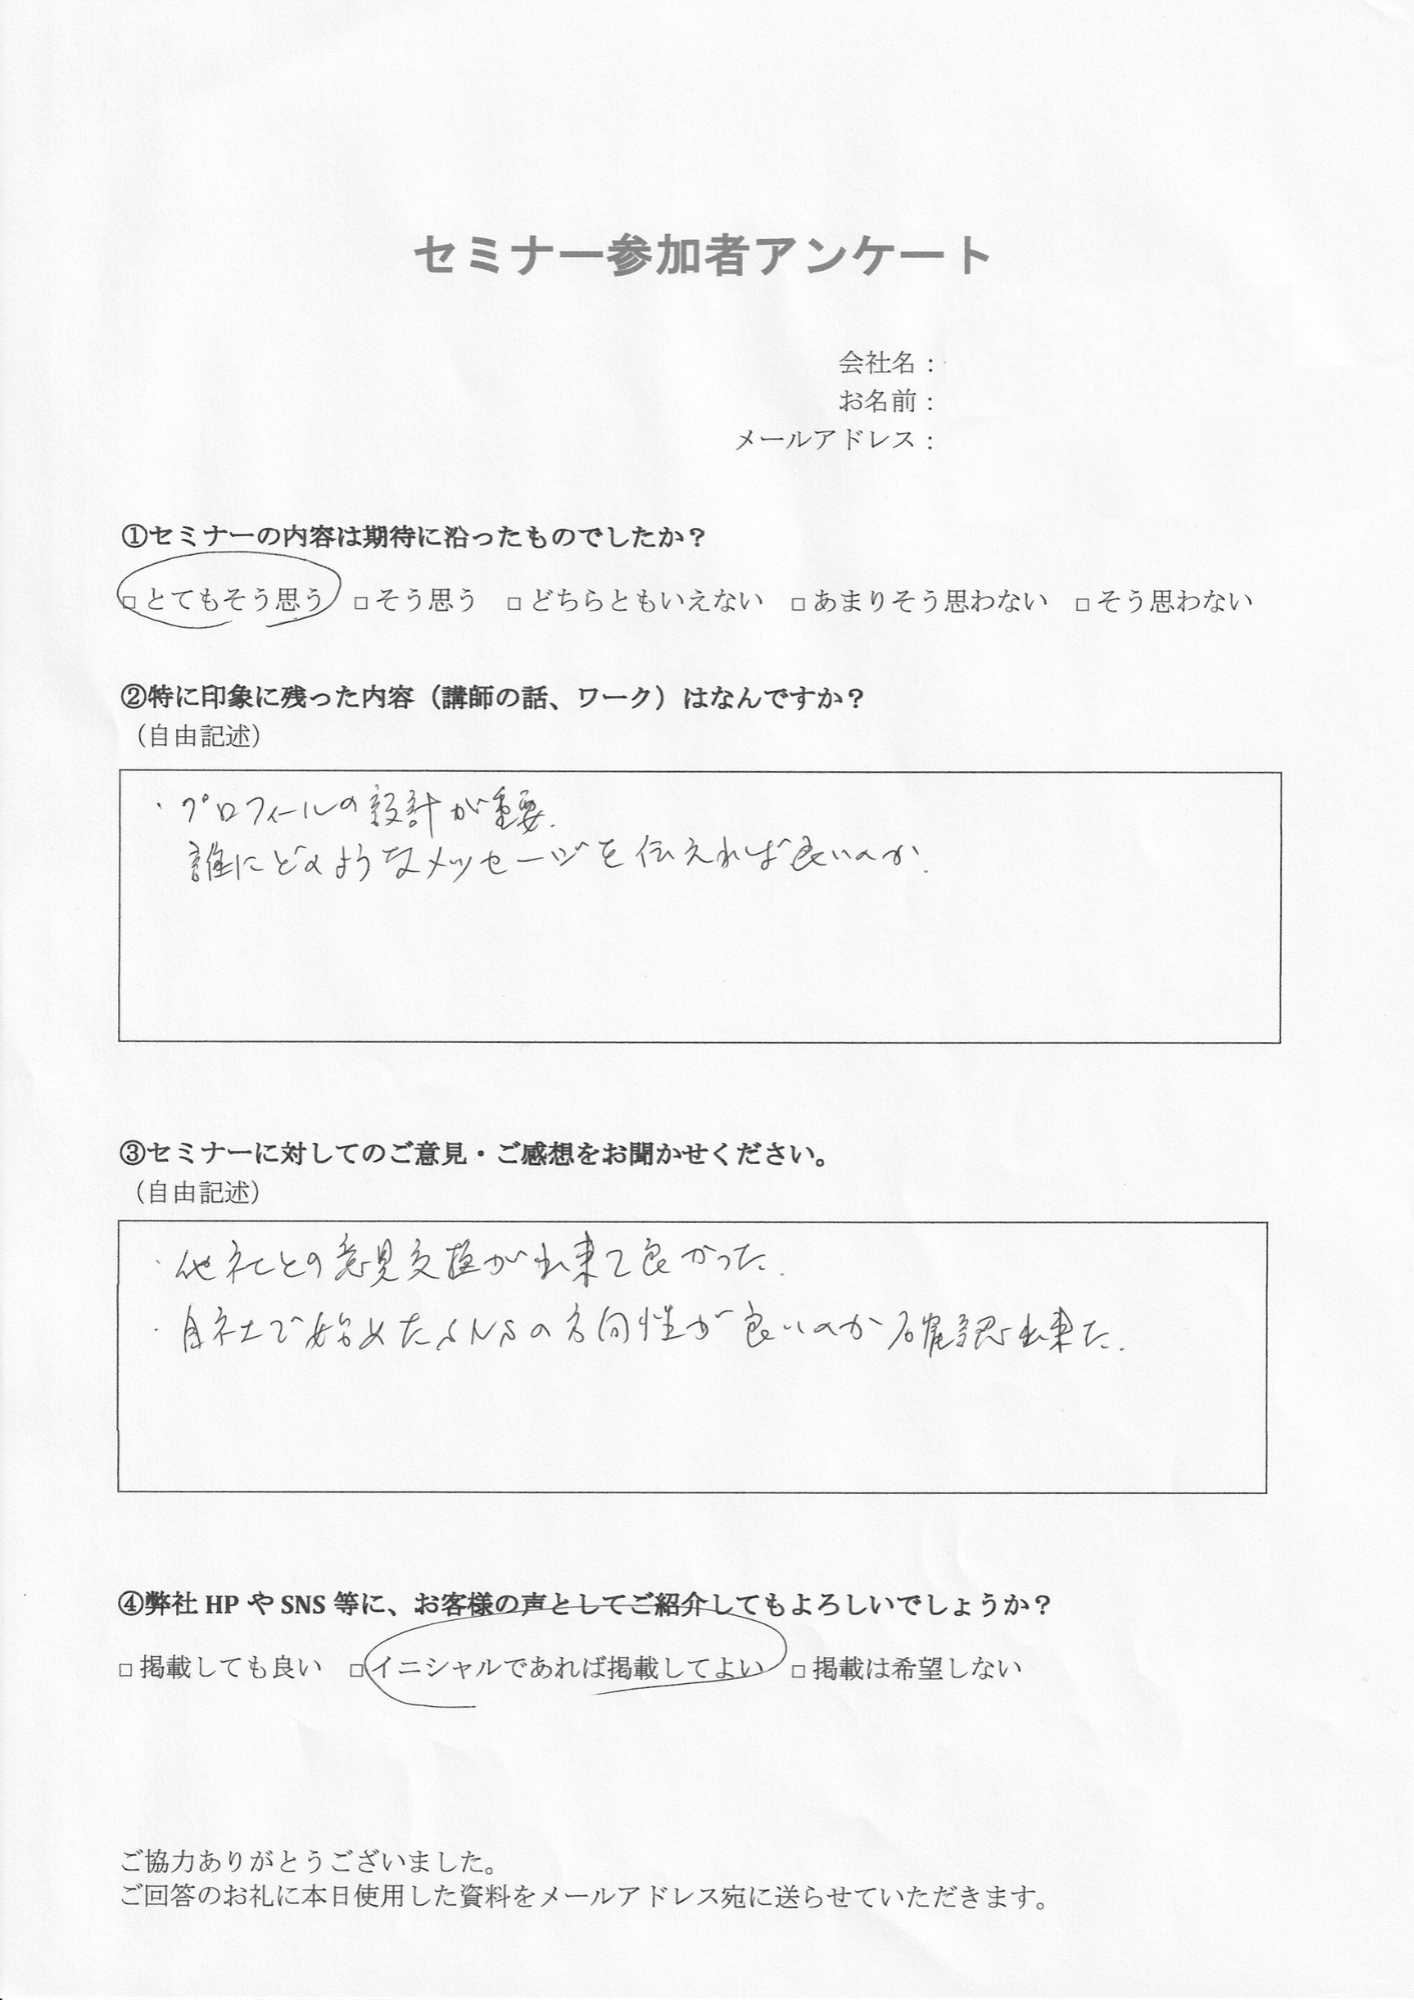 セミナー参加者アンケート
会社名：
お名前：
メールアドレス：
①セミナーの内容は期待に沿ったものでしたか？
□とてもそう思う □そう思う □どちらともいえない □あまりそう思わない □そう思わない
②特に印象に残った内容（講師の話、ワーク）はなんですか？
（自由記述）
・プロフィールの設計が重要.
誰にどのようなメッセージを伝えれば良いのか.
③セミナーに対してのご意見・ご感想をお聞かせください。
（自由記述）
・他社との意見交換が出来て良かった.
・自社で始めたSNSの方向性が良いのか確認出来た.
④弊社 HP や SNS 等に、お客様の声としてご紹介してもよろしいでしょうか？
□掲載しても良い □イニシャルであれば掲載してよい □掲載は希望しない
ご協力ありがとうございました。
ご回答のお礼に本日使用した資料をメールアドレス宛に送らせていただきます。